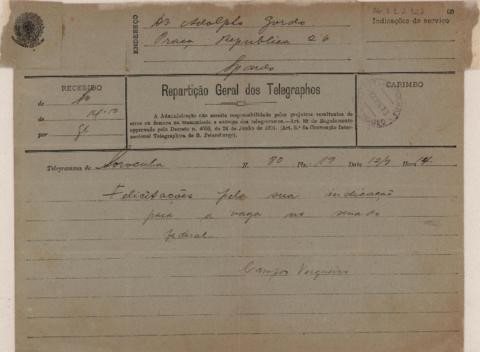 Dr Adolpho Gordo
ENDEREÇO
Praça Republica 26
S. Paulo
Indicações de serviço
RECEBIDO
de
14-10
por
Repartição Geral dos Telegraphos
A Administração não aceita responsabilidade pelos prejuizos resultantes de
erro ou demora na transmissão e entrega dos telegrammas.—Art. 89 do Regulamento
approvado pelo Decreto n. 4053, de 24 de Junho de 1901. (Art. 3.º da Convenção Inter-
nacional Telegraphica de S. Petersburgo).
CARIMBO
Telegramma de Sorocaba N. 80 Pls. 19 Data 12/9 Hora 14
Felicitações pela sua indicação
para a vaga no senado
federal
Campos Vergueiro